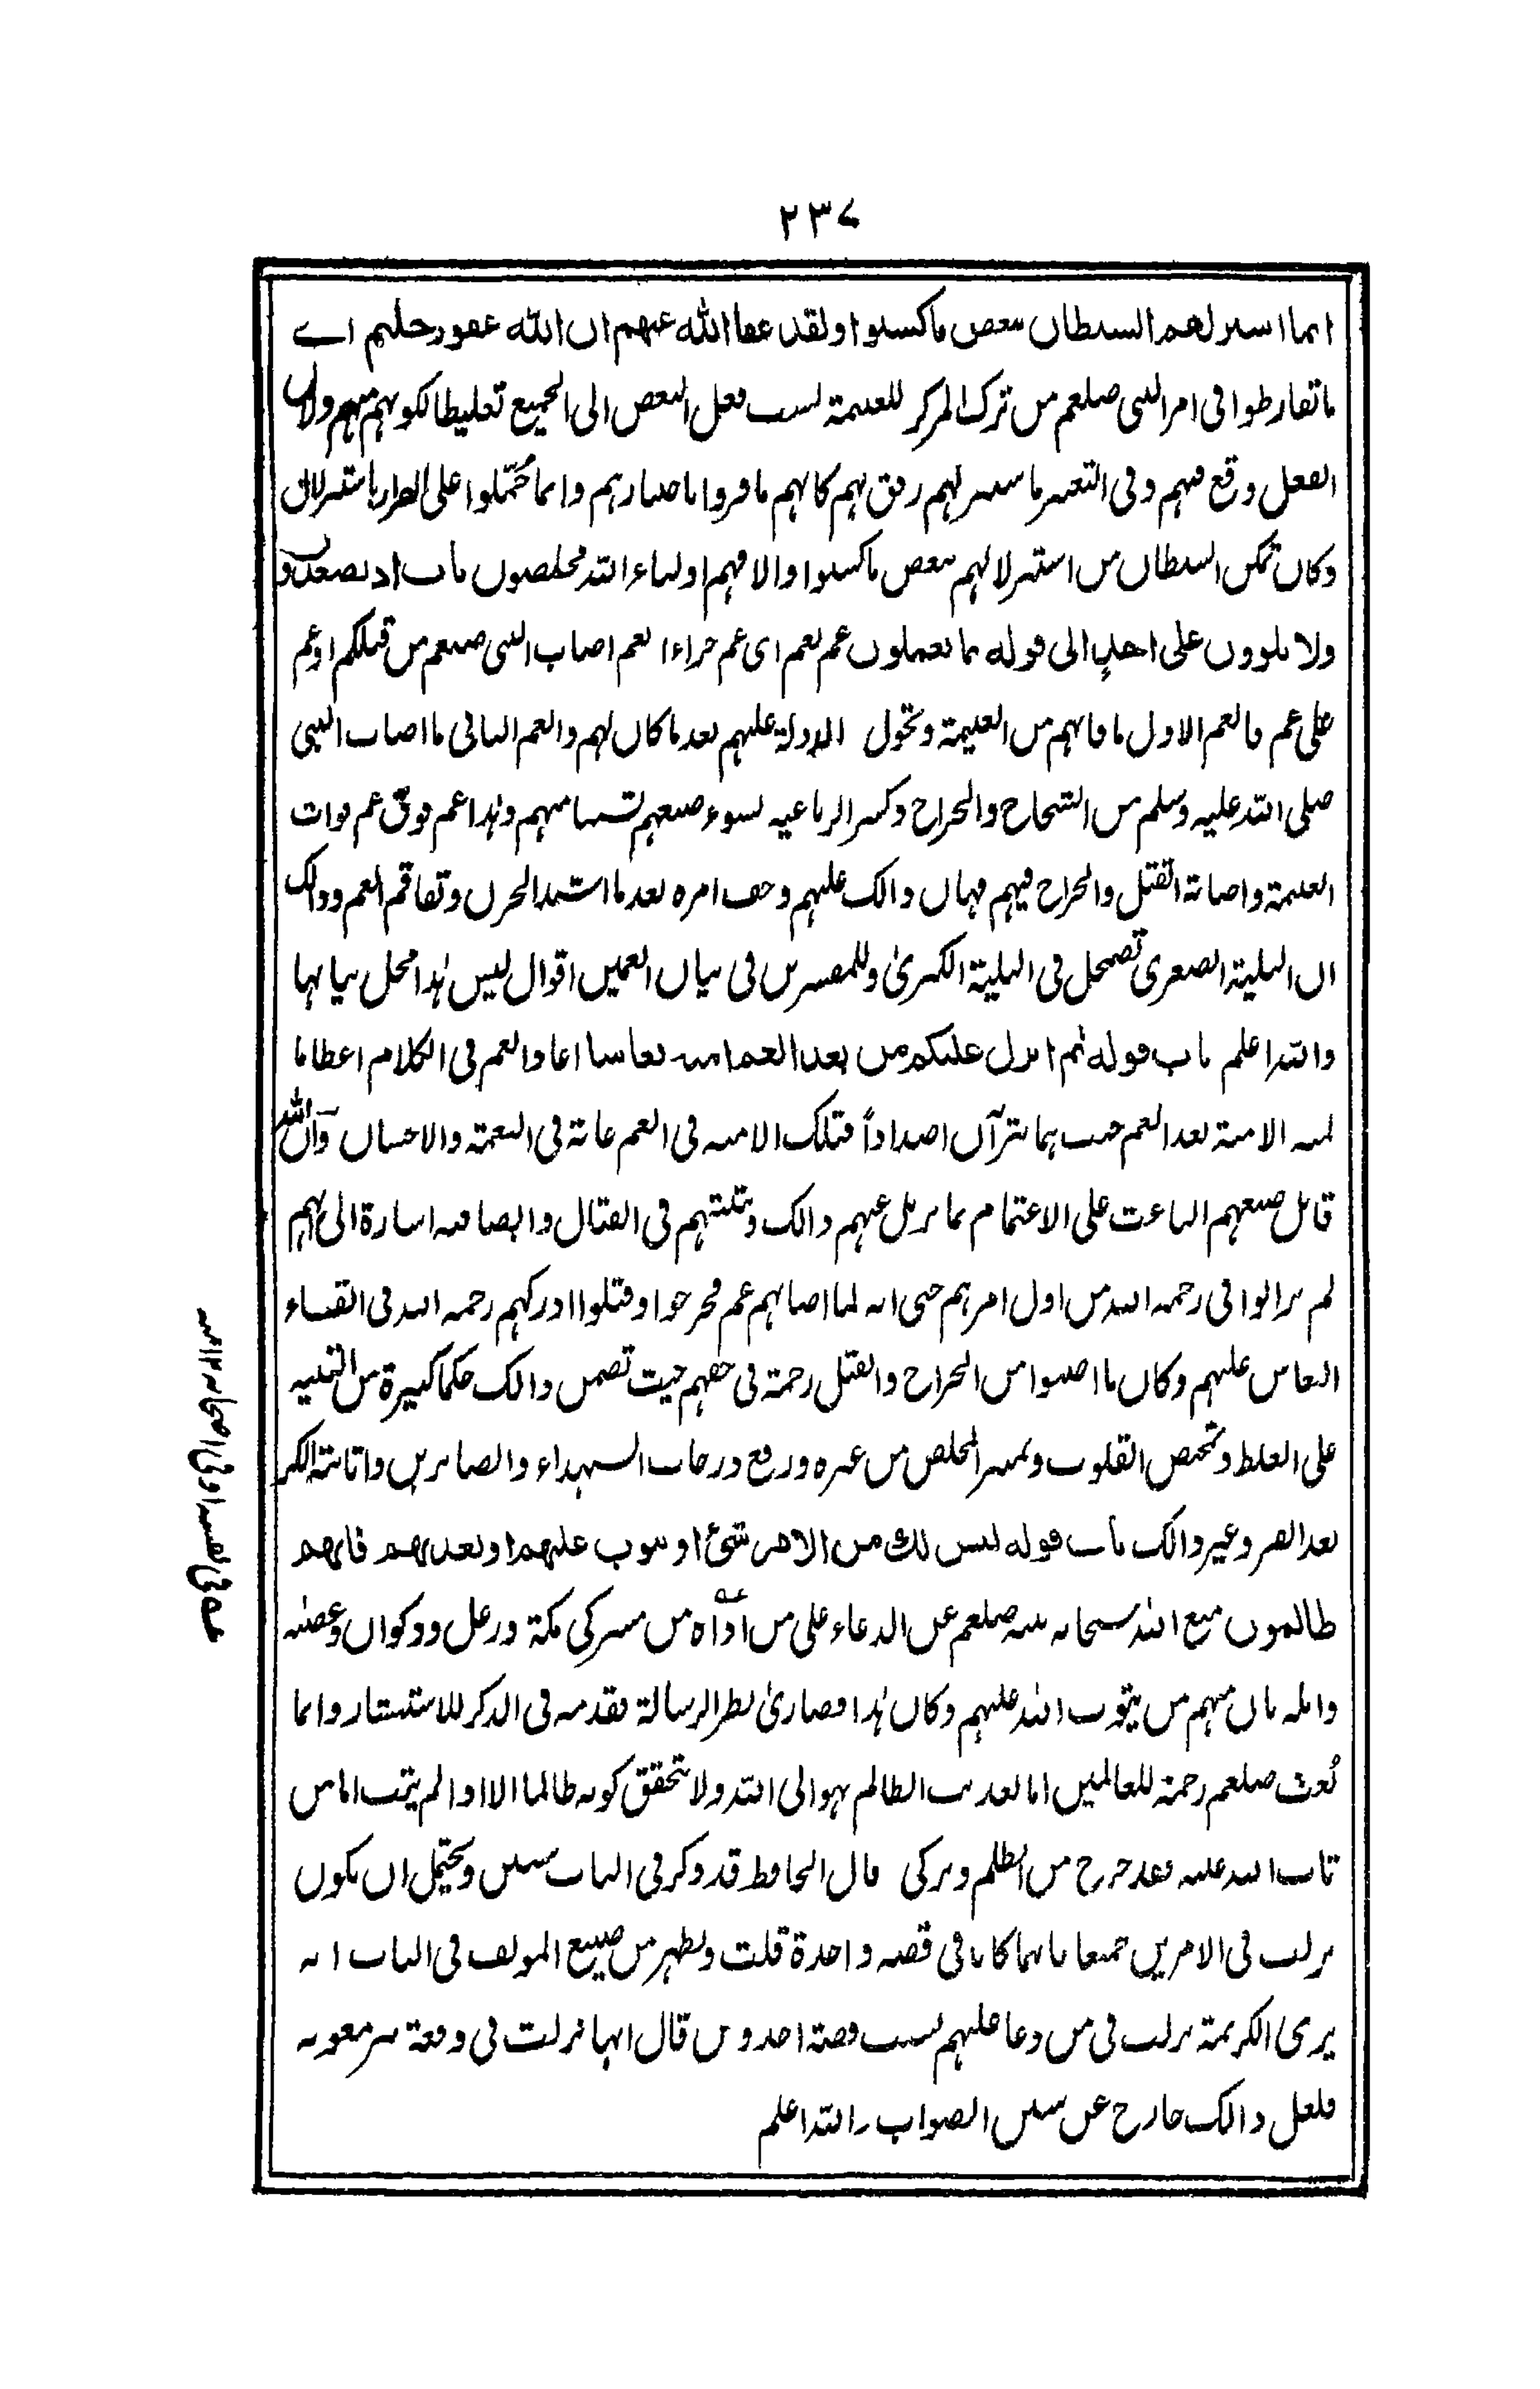 ٢٣٧
انما استزلهم الشيطان ببعض ما كسبوا ولقد عفا الله عنهم ان الله غفور حليم اے
ما تفارطوا فى امر النبى صلعم من ترك المركز للغنيمة نسب فعل البعض الى الجميع تغليظا لكونهم منهم ولان
الفعل وقع فيهم وفى التعبير باستزلهم رفق بهم كانهم ما فروا باختيارهم وانما حملوا على الفرار باستزلال
وكان تمكن الشيطان من استزلالهم ببعض ما كسبوا والا فهم اولياء الله مخلصون باب اذ تصعدون
ولا تلوون على احد الى قوله بما تعملون غم بغم اى غم جزاء الغم اصاب النبى صلعم من قبلكم او غم
على غم فالغم الاول ما فاتهم من الغنيمة وتحول الدولة عليهم بعد ما كان لهم والغم الثانى ما اصاب النبى
صلى الله عليه وسلم من الشجاج والجراح وكسر الرباعيه لسوء صنعهم منهم وهذا غم فوق غم فوات
الغنيمة واصابة القتل والجراح فيهم فهان ذالك عليهم وخف امره بعد ما اشتد الحزن وتفاقم الغم وذالك
ان البلية الصغرى تضمحل فى البلية الكبرىٰ وللمفسرين فى بيان الغمين اقوال ليس هذا محل بيانها
والله اعلم باب قوله ثم انزل عليكم من بعد الغم امنة نعاسا اعاد الغم فى الكلام اعظاما
لمنه الامنة بعد الغم حيث هما ضداداً فتلك الامنه فى الغم غاية فى النعمة والاحسان وان الله
قابل صنعهم الباعث على الاغتمام بما يزيل عنهم ذالك ويثبتهم فى القتال وايضا فيه اشارة الى انهم
لم يزالوا فى رحمة الله من اول امرهم حتى انه لما اصابهم غم فجرحوا وقتلوا ادركهم رحمة الله فى القاء
النعاس عليهم وكان ما اصيبوا من الجراح والقتل رحمة فى حقهم حيث تضمن ذالك حكما كبيرة من التنبيه
على الغلط وتمحيص القلوب وتميز المخلص من غيره ورفع درجات الشهداء والصابرين واثابته
بعد الصبر وغير ذالك باب قوله ليس لك من الامر شئ او يتوب عليهم او يعذبهم فانهم
ظالمون منع الله سبحانه نبيه صلعم عن الدعاء على من اذاه من مشركى مكة ورعل وذكوان وعصيه
وامله بان منهم من يتوب الله عليهم وكان هذا قصارىٰ نظر الرسالة فقدمه فى الذكر للاستبشار وانما
بُعث صلعم رحمة للعالمين اما تعذيب الظالم فهو الى الله ولا يتحقق كونه ظالما الا اذا لم يتب اما من
تاب الله عليه فقد خرج من الظلم وتزكى قال الحافظ قد ذكر فى الباب سببين ويحتمل ان يكون
نزلت فى الامرين جميعا بانهما كانا فى قصه واحدة قلت ويظهر من صنيع المولف فى الباب انه
يرى الكريمة نزلت فى من دعا عليهم بسبب قصة احد ومن قال انها نزلت فى وقعة بئر معونه
فلعل ذالك خارج عن سنن الصواب والله اعلم